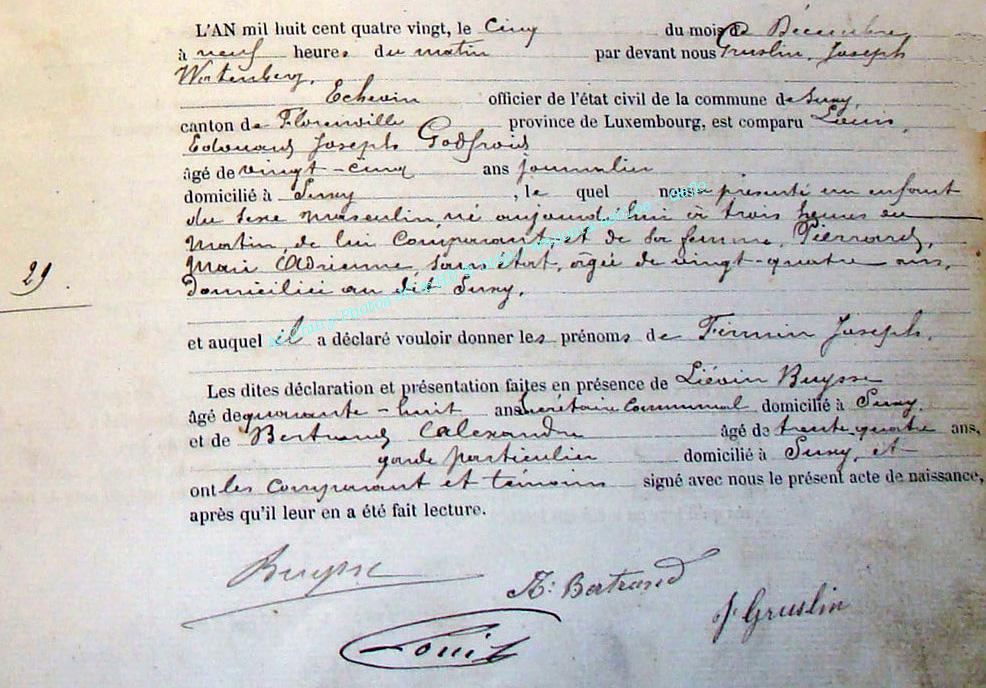 L'AN mil huit cent quatre vingt, le cinq du mois de Décembre
à neuf heures du matin par devant nous Gruslin, Joseph
Echevin officier de l'état civil de la commune de Suxy,
canton de Florenville province de Luxembourg, est comparu Louis,
Edouard Joseph Godfroid
âgé de vingt-cinq ans journalier
domicilié à Suxy , le quel nous a présenté un enfant
du sexe masculin né aujourd'hui à trois heures du
matin, de lui comparant et de sa femme, Pierrard,
Marie Adrienne, sans état, âgée de vingt-quatre ans,
domiciliée au dit Suxy,
29.
et auquel il a déclaré vouloir donner les prénoms de Firmin Joseph.
Les dites déclaration et présentation faites en présence de Liévin Buysse
âgé de quarante-huit ans Secrétaire communal domicilié à Suxy.
et de Bertrand Alexandre âgé de trente-quatre ans,
garde particulier domicilié à Suxy, et
ont les comparant et témoins signé avec nous le présent acte de naissance,
après qu'il leur en a été fait lecture.
Buysse
A: Bertrand
J Gruslin
Louis